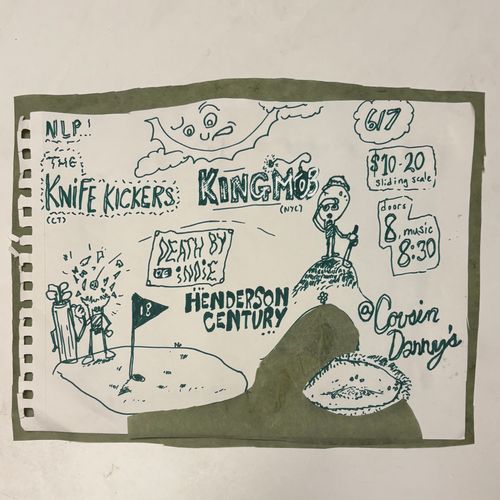 NLP!
6/7
THE
KNIFE KICKERS
(CT)
KINGMOB
(NYC)
$10-20
sliding scale
doors
8 music
8:30
DEATH BY
INDIE
HENDERSON
CENTURY
@ Cousin
Danny's
18